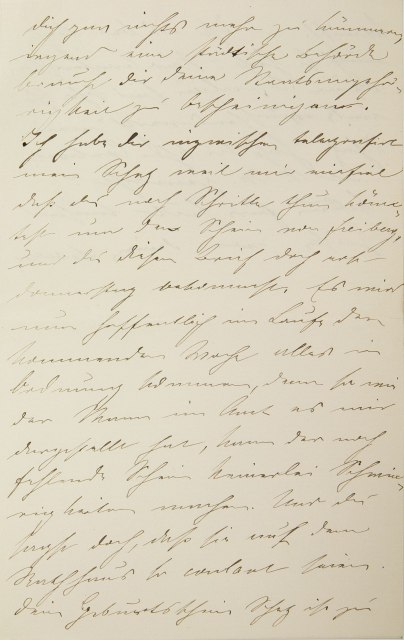 dich gar nichts mehr zu kümmern
irgend eine städtische Behörde
braucht dir deine Staatsangehö-
rigkeit zu bescheinigen.
Ich habe dir inzwischen telegrafirt
mein Schatz weil mir einfiel
daß du noch Schritte thun könn-
test um den Schein von Freiberg,
und du diesen Brief doch erst
Donnerstag bekommst. Es wird
nun hoffentlich im Laufe der
kommenden Woche alles in
Ordnung kommen, denn so wie
der Mann im Amt es mir
dargestellt hat, kann der noch
fehlende Schein keinerlei Schwie-
rigkeiten machen. Und du
sagst doch, daß sie auf dem
Rathhaus so coulant seien.
Dein Geburtsschein Schatz ist zu